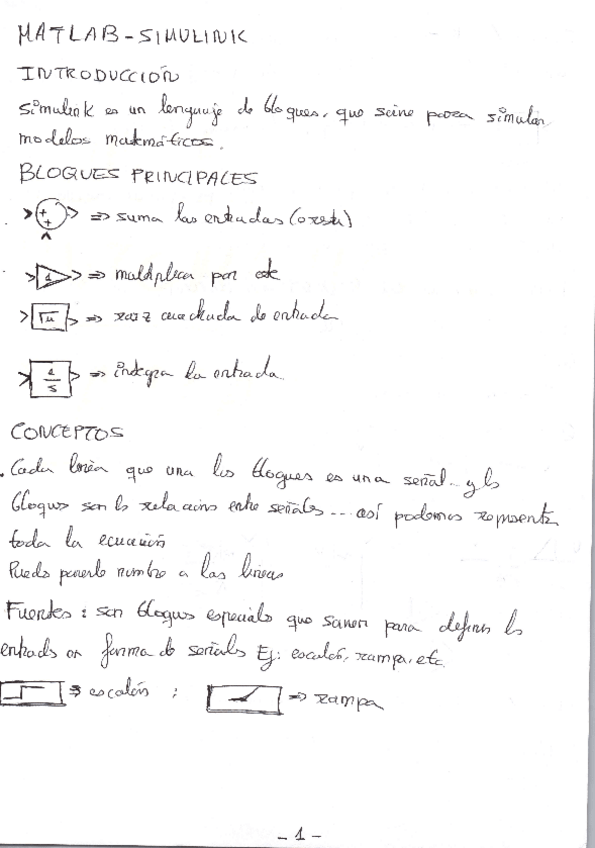 MATLAB - SIMULINK
INTRODUCCIÓN
Simulink es un lenguaje de bloques, que sirve para simular
modelos matemáticos.
BLOQUES PRINCIPALES
+ + => suma las entradas (o resta)
1 => multiplica por cte
√u => raiz cuadrada de entrada
1/s => integra la entrada
CONCEPTOS
. Cada linea que une los bloques es una señal... y los
bloques son las relaciones entre señales... así podemos representar
toda la ecuación
Puedo ponerle nombre a las lineas
Fuentes: son bloques especiales que sirven para definir las
entradas en forma de señales Ej: escalón, rampa, etc.
=> escalón ; => rampa
- 1 -